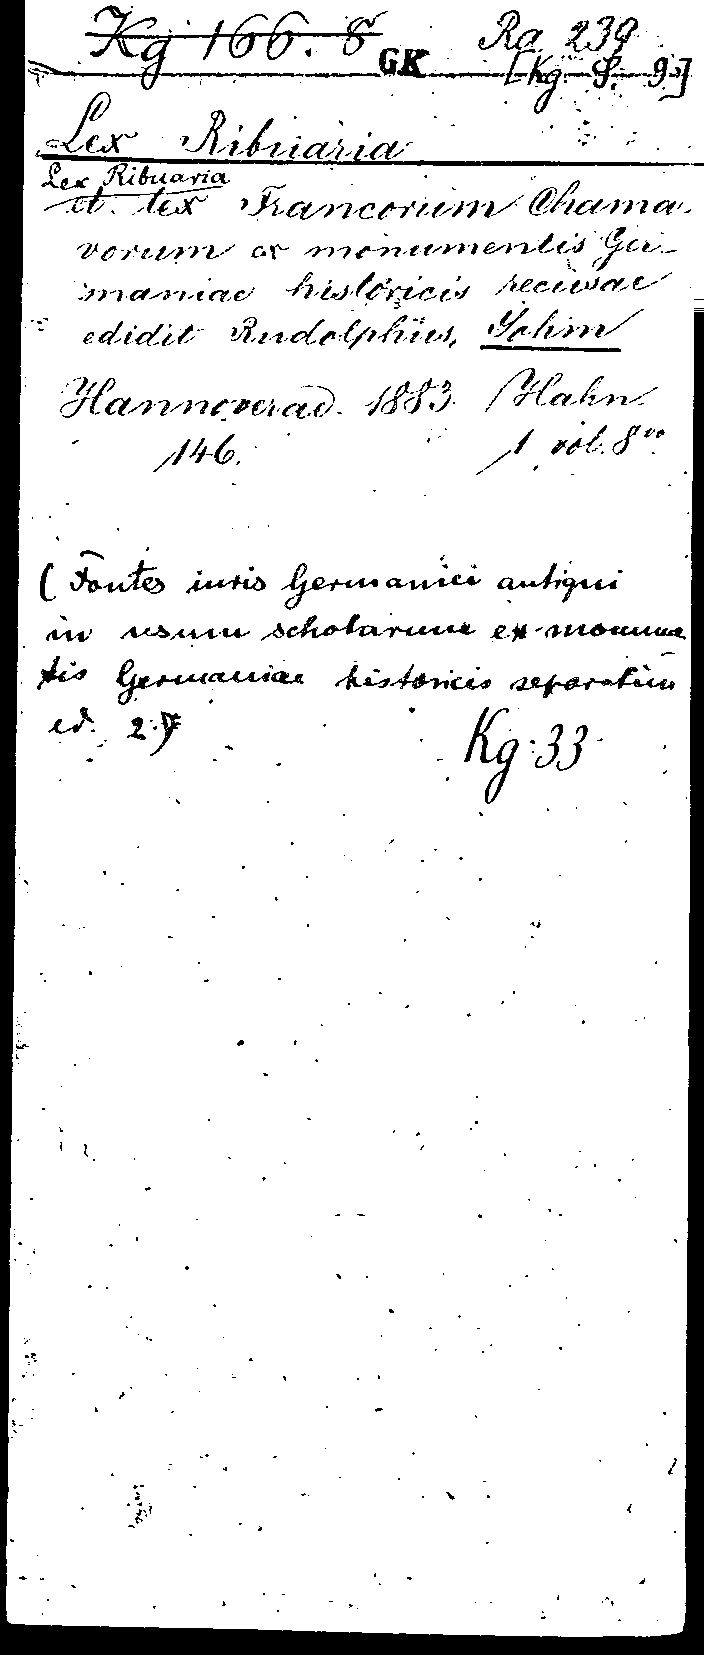 Kg 166. 8 GK Ra 239
[Kg. S. 9.]
Lex Ribuaria
Lex Ribuaria
et lex Francorum Chama-
vorum ex monumentis Ger-
maniae historicis recusae
edidit Rudolphus Sohm
Hannoverae. 1883. Hahn.
146. 1 vol. 8vo
(Fontes iuris Germanici antiqui
in usum scholarum ex monume
tis Germaniae historicis separatim
ed. 2.)
Kg 33